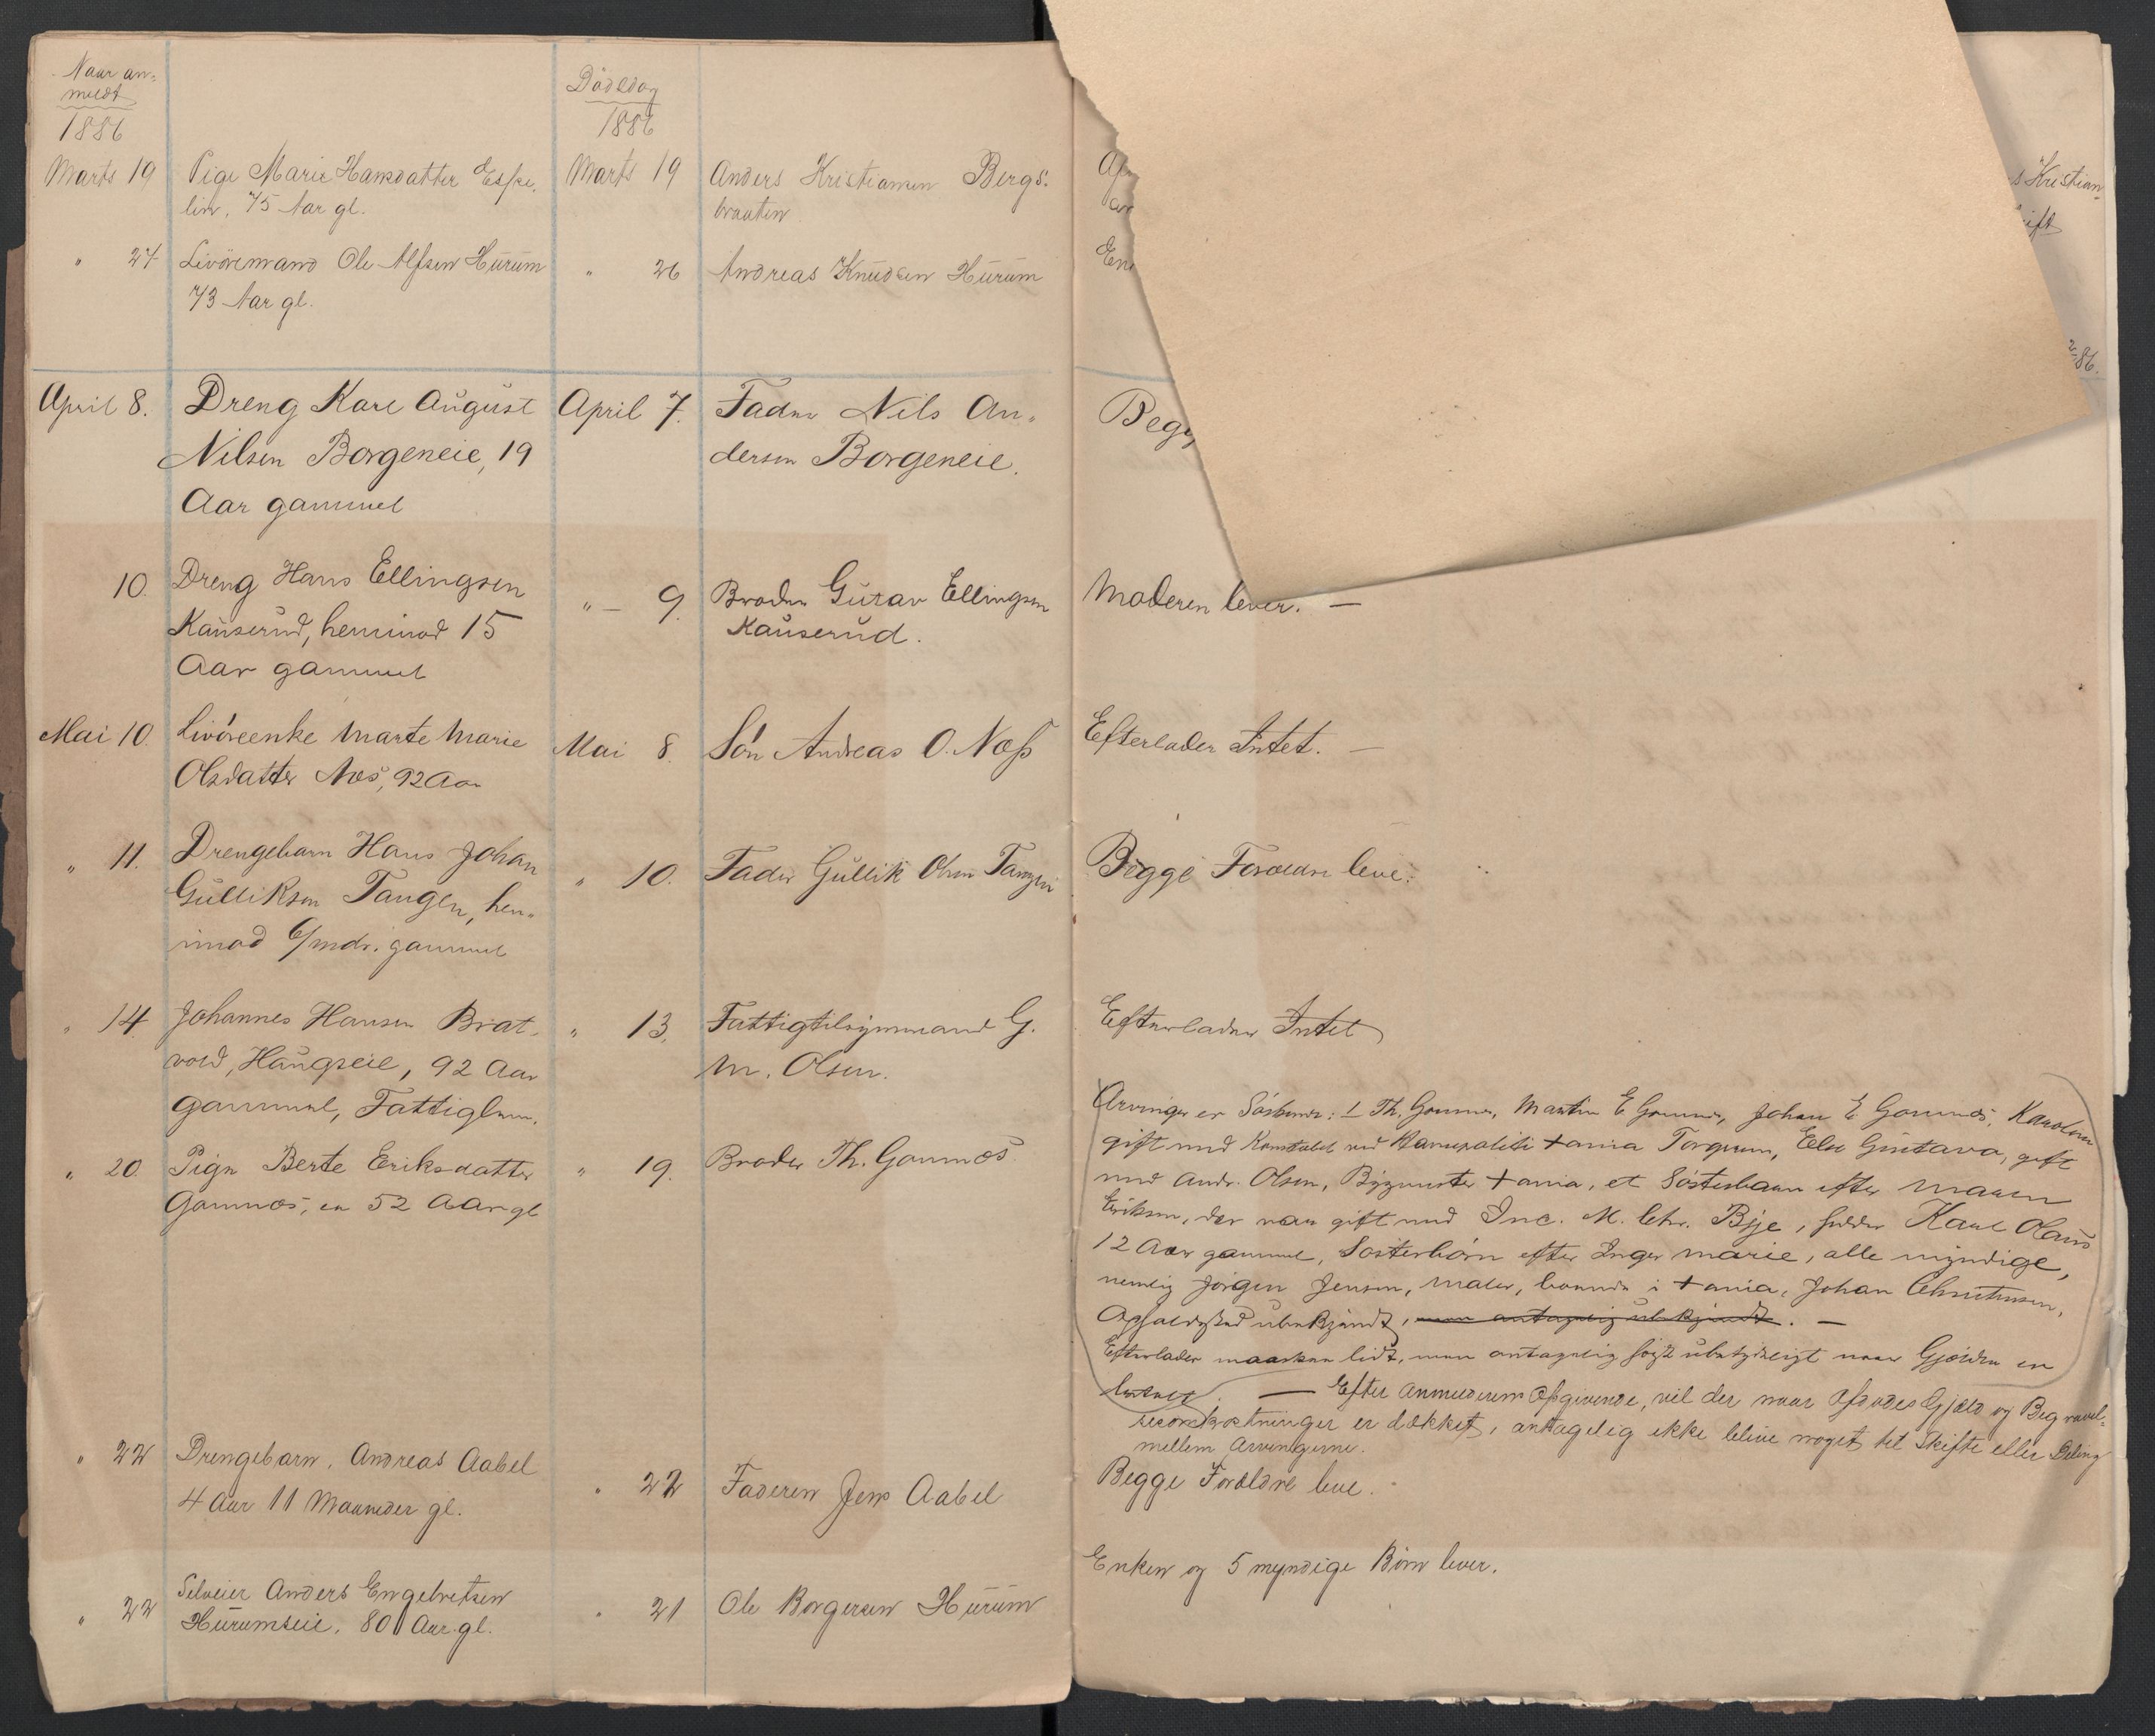 Naar an-
meldt
1886
Dödsdag
1886
Marts 19
Pige Marie Hansdatter Espe-
lin, 75 Aar gl.
Marts 19
Anders Kristiansen Bergs-
braaten
" 27
Livöremand Ole Alfsen Hurum
73 Aar gl.
" 26
Andreas Knudsen Hurum
s Kristian-
ift
86.
April 8.
Dreng Karl August
Nilsen Borgeneie, 19
Aar gammel
April 7.
Fader Nils An-
dersen Borgeneie.
Begg
10.
Dreng Hans Ellingsen
Kauserud, henimod 15
Aar gammel
" — 9.
Broder Gustav Ellingsen
Kauserud.
Moderen lever. —
Mai 10.
Livöreenke Marte Marie
Olsdatter Næs, 92 Aar
Mai 8.
Sön Andreas O. Næss
Efterlader Intet. —
" 11.
Drengebarn Hans Johan
Gulliksen Tangen, hen-
imod 6/mdr. gammel
" 10.
Fader Gullik Olsen Tangen
Begge Forældre leve.
" 14.
Johannes Hansen Brat-
vold, Haugseie, 92 Aar
gammel, Fattiglem.
" 13.
Fattigtilsynsmand G.
M. Olsen.
Efterlader Intet
" 20.
Pige Berte Eriksdatter
Gomnæs, en 52 Aar gl
" 19.
Broder Th. Gomnæs.
Arvinger er Söskende: 1 Th. Gomnæs, Martin E Gomnæs, Johan E Gomnæs, Karoline
gift med Konstabel ved Havnepolitiet i Xania Torgersen, Else Gustava, gift
med Andr. Olsen, Bygmester Xania, et Sösterbarn efter Maren
Eriksen, der var gift med Chr. Bye, Karl Olaus
12 Aar gammel, Sösterbörn efter Inger Marie, alle myndige,
nemlig Jörgen Jensen, Maler, boende i Xania, Johan Christensen,
Opholdssted ubekjendt, men antagelig ubekjendt. —
Efterlader maaske lidt, men antagelig höist ubetydeligt naar Gjælden er
betalt. — Efter Anmelderens Opgivende, vil der naar Afdödes Gjæld og Begravel-
sesomkostninger er dækket, antagelig ikke blive noget til Skifte eller Deling
mellem Arvingerne.
" 22
Drengebarn, Andreas Aabel
4 Aar 11 Maaneder gl.
" 22
Faderen Jens Aabel
Begge Forældre leve.
" 22
Selveier Anders Engebretsen
Hurumseie, 80 Aar gl.
" 21
Ole Borgersen Hurum
Enken og 5 myndige Börn lever.